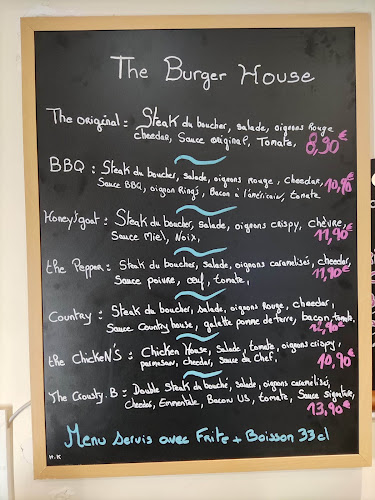 The Burger House
The original : Steak du boucher, salade, oignons Rouge
cheedar, Sauce original, Tomate, 8,90€
BBQ : Steak du boucher, salade, oignons rouge, Cheedar, 10,90€
Sauce BBQ, oignon Ring's, Bacon à l'américain, tomate
Honey's goat : Steak du boucher, salade, oignons crispy, chèvre,
Sauce Miel, Noix, 11,90€
the Pepper : Steak du boucher, salade, oignons caramelisés, cheedar,
Sauce poivre, oeuf, tomate, 11,90€
Country : Steak du boucher, salade, oignons Rouge, cheedar,
Sauce Country house, galette pomme de terre, bacon, tomate,
12,90€
the ChickeN'S : Chicken House, Salade, tomate, oignons crispy,
parmesan, cheedar, Sauce du Chef, 10,90€
The Crousty. B : Double Steak du bouché, Salade, oignons caramelisés,
Cheedar, Emmentale, Bacon US, tomate, Sauce signature,
13,90€
Menu servis avec Frite + Boisson 33cl
H.K